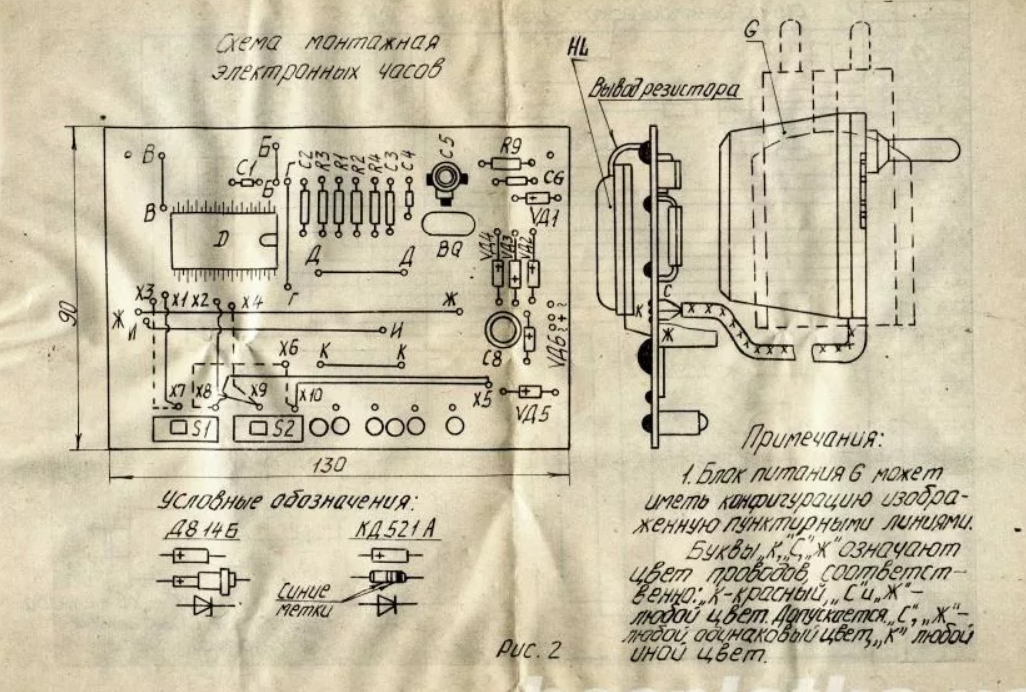 Схема монтажная
электронных часов
HL
G
Вывод резистора
В
В
С1
Б
Б
С2
R3
R1
R2
R4
С3
С4
С5
R9
С6
VД1
BQ
D
Д
Д
VД4
VД3
VД2
Г
X3
X1
X2
X4
Ж
Ж
И
И
X6
К
К
С8
VД6
~
+
~
X7
X8
X9
X10
X5
VД5
S1
S2
90
130
С
К
Ж
Условные обозначения:
Д814Б
КД521А
Синие
метки
Рис. 2
Примечания:
1. Блок питания G может
иметь конфигурацию изобра-
женную пунктирными линиями.
Буквы „К", „С", „Ж" означают
цвет проводов, соответст-
венно: „К"-красный, „С" и „Ж"-
любой цвет. Допускается „С", „Ж"-
любой одинаковый цвет, „К" любой
иной цвет.